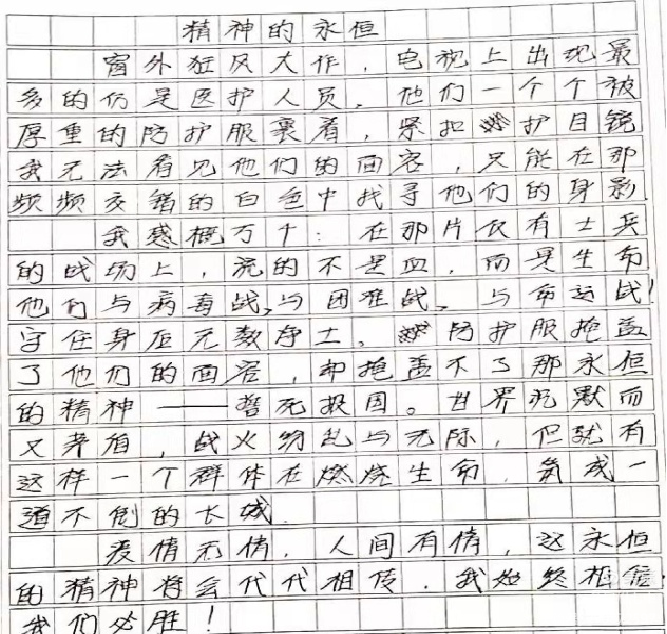 精神的永恒
窗外狂风大作，电视上出现最
多的仍是医护人员，他们一个个被
厚重的防护服裹着，紧扣护目镜
我无法看见他们的面容，只能在那
频频交错的白色中找寻他们的身影
我感概万千：在那片仅有士兵
的战场上，流的不是血，而是生命
他们与病毒战，与困难战，与命运战！
守住身后无数净土。防护服掩盖
了他们的面容，却掩盖不了那永恒
的精神——誓死报国。世界沉默而
又矛盾，战火纷乱与无际，但就有
这样一个群体在燃烧生命，筑成一
道不倒的长城.
疫情无情，人间有情，这永恒
的精神将会代代相传．我始终相信
我们必胜！